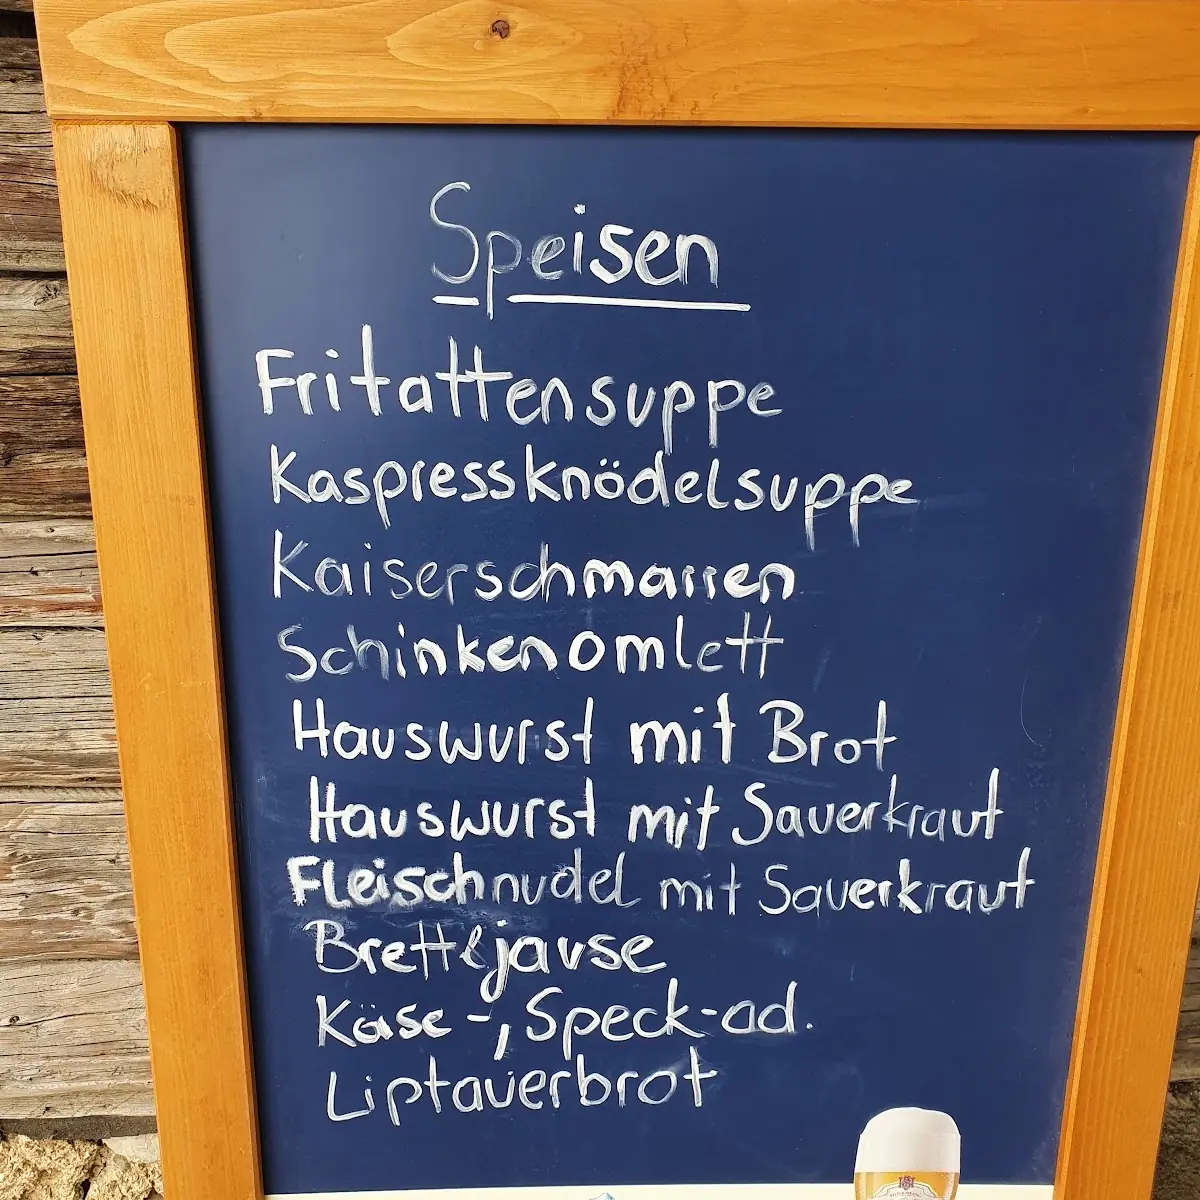 Speisen
Fritattensuppe
Kaspressknödelsuppe
Kaiserschmarren
Schinkenomlett
Hauswurst mit Brot
Hauswurst mit Sauerkraut
Fleischnudel mit Sauerkraut
Brettljause
Käse-, Speck- od.
Liptauerbrot